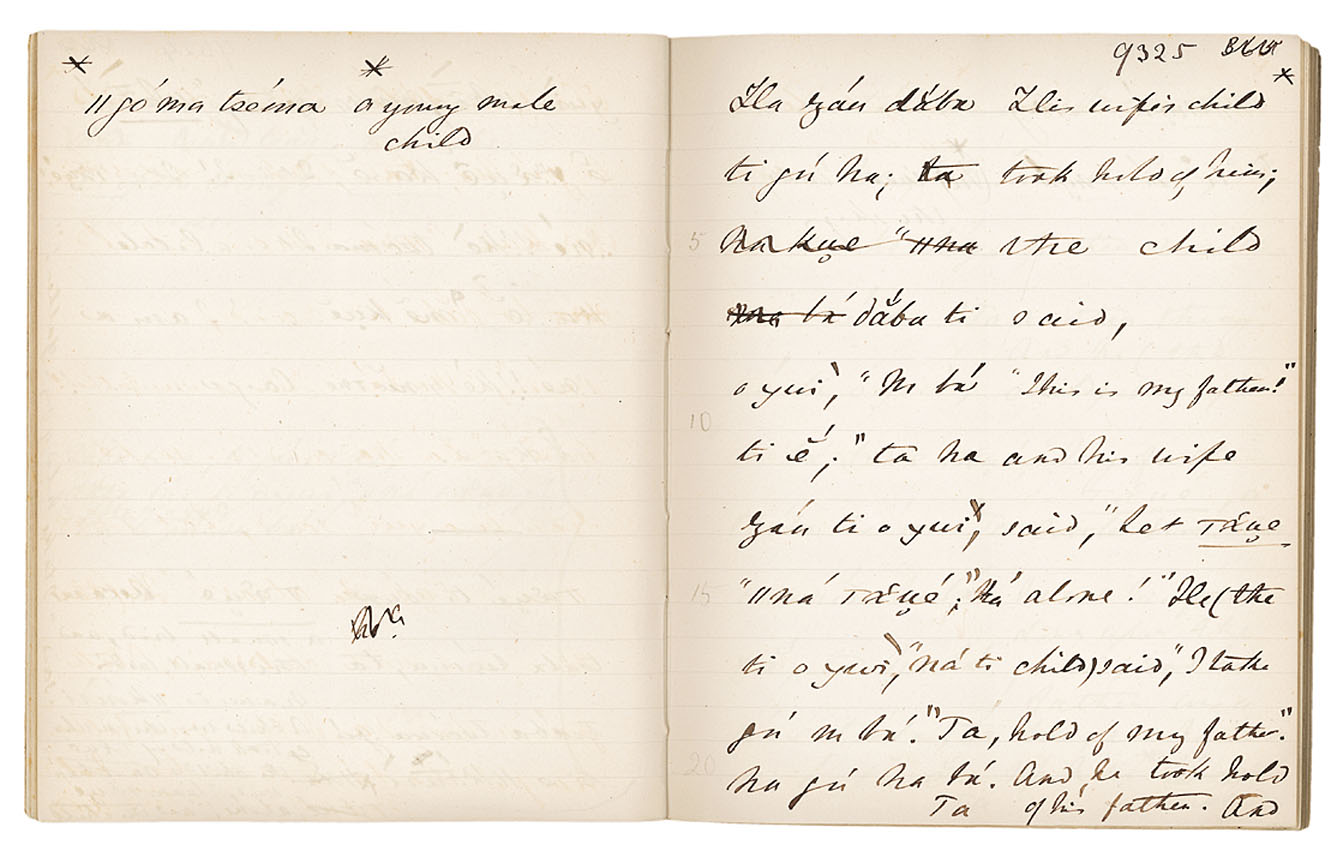 * *
ǁgó ma tséma a young male
child
9325
*
Ha gáu dăba His wife's child
ti gú ha; ta took hold of him;
5 the child
dắba ti said,
o ywì, "M bá "This is my father!"
10
ti ĕ́;" ta ha and his wife
gáu ti o ywì, said, "Let
15 "ǁná há alone!" He (the
ti o ywì, "ná ti child) said, "I take
gú m bá." Tá, hold of my father."
20 ha gú ha bá. And he took hold
Ta of his father. And